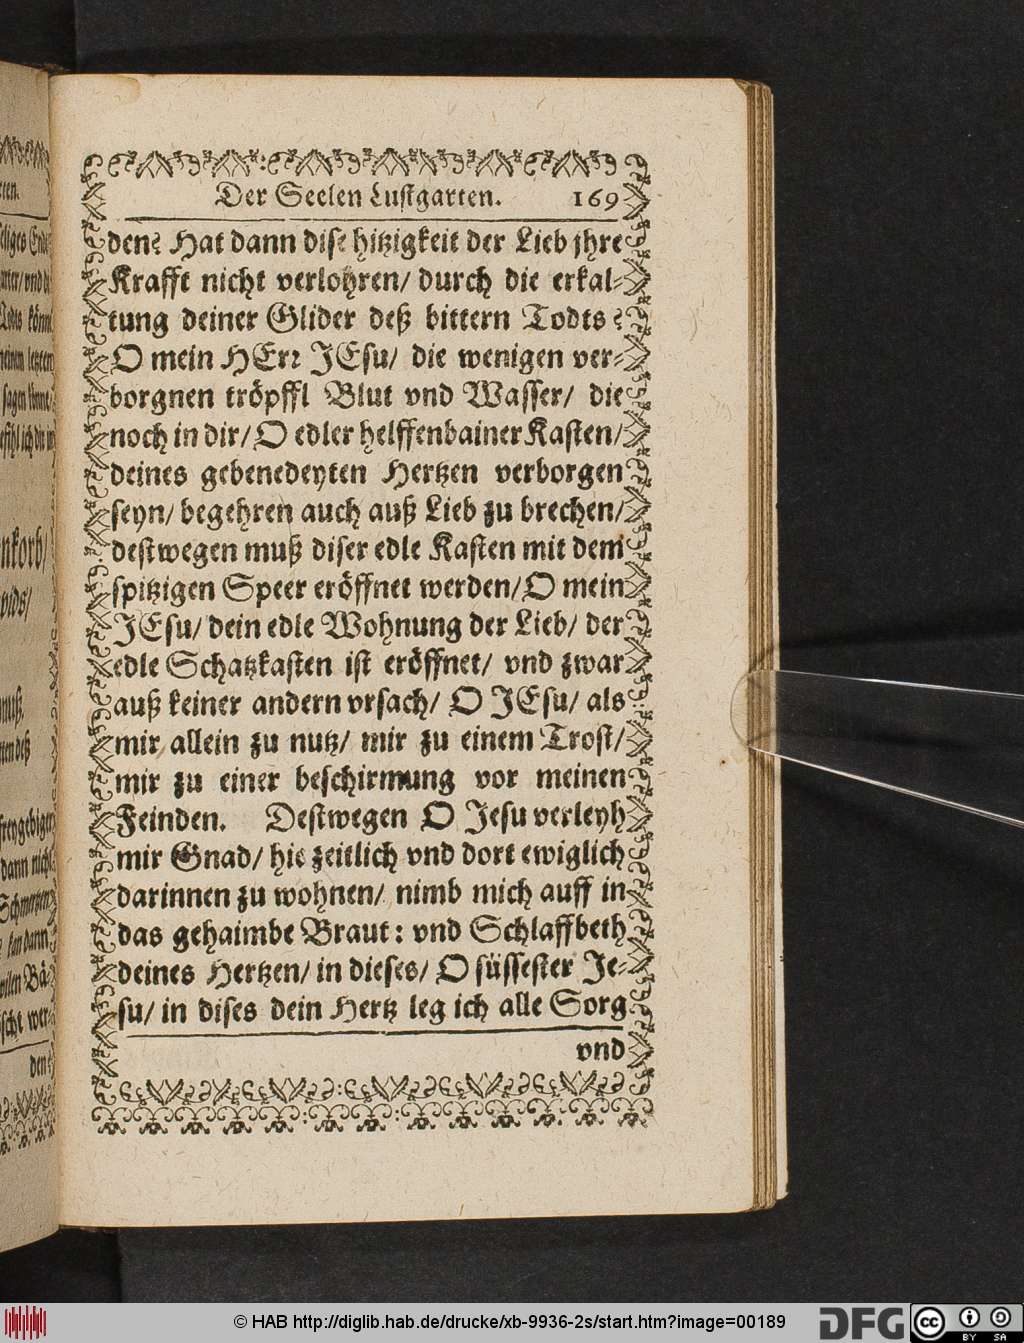 Der Seelen Lustgarten. 169
den? Hat dann dise hitzigkeit der Lieb jhre
Krafft nicht verlohren/ durch die erkal-
tung deiner Glider deß bittern Todts?
O mein HErr JEsu/ die wenigen ver-
borgnen tröpffl Blut vnd Wasser/ die
noch in dir/ O edler helffenbainer Kasten/
deines gebenedeyten Hertzen verborgen
seyn/ begehren auch auß Lieb zu brechen/
destwegen muß diser edle Kasten mit dem
spitzigen Speer eröffnet werden/ O mein
JEsu/ dein edle Wohnung der Lieb/ der
edle Schatzkasten ist eröffnet/ vnd zwar
auß keiner andern vrsach/ O JEsu/ als
mir allein zu nutz/ mir zu einem Trost/
mir zu einer beschirmung vor meinen
Feinden. Destwegen O Jesu verleyh
mir Gnad/ hie zeitlich vnd dort ewiglich
darinnen zu wohnen/ nimb mich auff in
das gehaimbe Braut: vnd Schlaffbeth
deines Hertzen/ in dieses/ O süssester Je-
su/ in dises dein Hertz leg ich alle Sorg
vnd
© HAB http://diglib.hab.de/drucke/xb-9936-2s/start.htm?image=00189
DFG
cc
BY SA